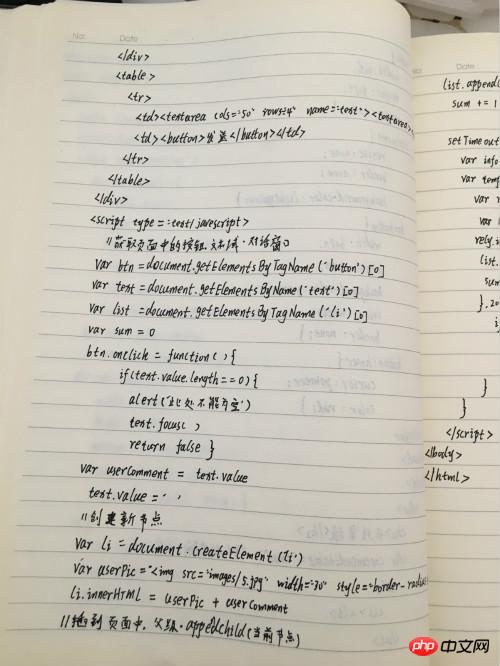 No.
Date
</div>
<table>
<tr>
<td><textarea cols="50" rows="4" name="text"><textarea>
<td><button>发送</button></td>
</tr>
</table>
</div>
<script type="text/javascript>
//获取页面中的按钮.文本域.对话窗口
var btn =document.getElementsByTagName('button')[0]
var text =document.getElementsByTagName('text')[0]
var list =document.getElementsByTagName('li')[0]
var sum = 0
btn.onclick = function(){
if(text.value.length==0){
alert('此处不能为空')
text.focus()
return false }
var userComment = text.value
text.value=' '
//创建新节点
var li =document.createElement('li')
var userPic="<img src="images/5.jpg" width="30" style="border-radius
li.innerHTML = userPic + userComment
//插到页面中, 父级.appedChild(当前节点)
Date
list.append
sum += 1
setTimeout
var info
var temp
var
var
rely.i
list.
sum
}.20
i
}
}
</script>
</body>
</html>
php 中文网